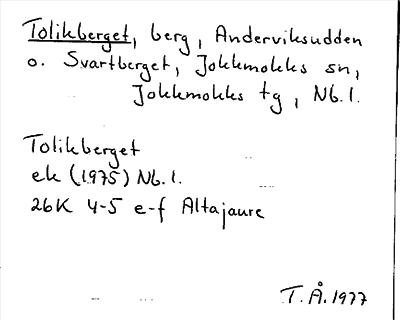 Tolikberget, berg, Anderviksudden
o. Svartberget, Jokkmokks sn,
Jokkmokks tg, Nb. l.
Tolikberget
ek (1975) Nb. l.
26K 4-5 e-f Altajaure
T. Å. 1977